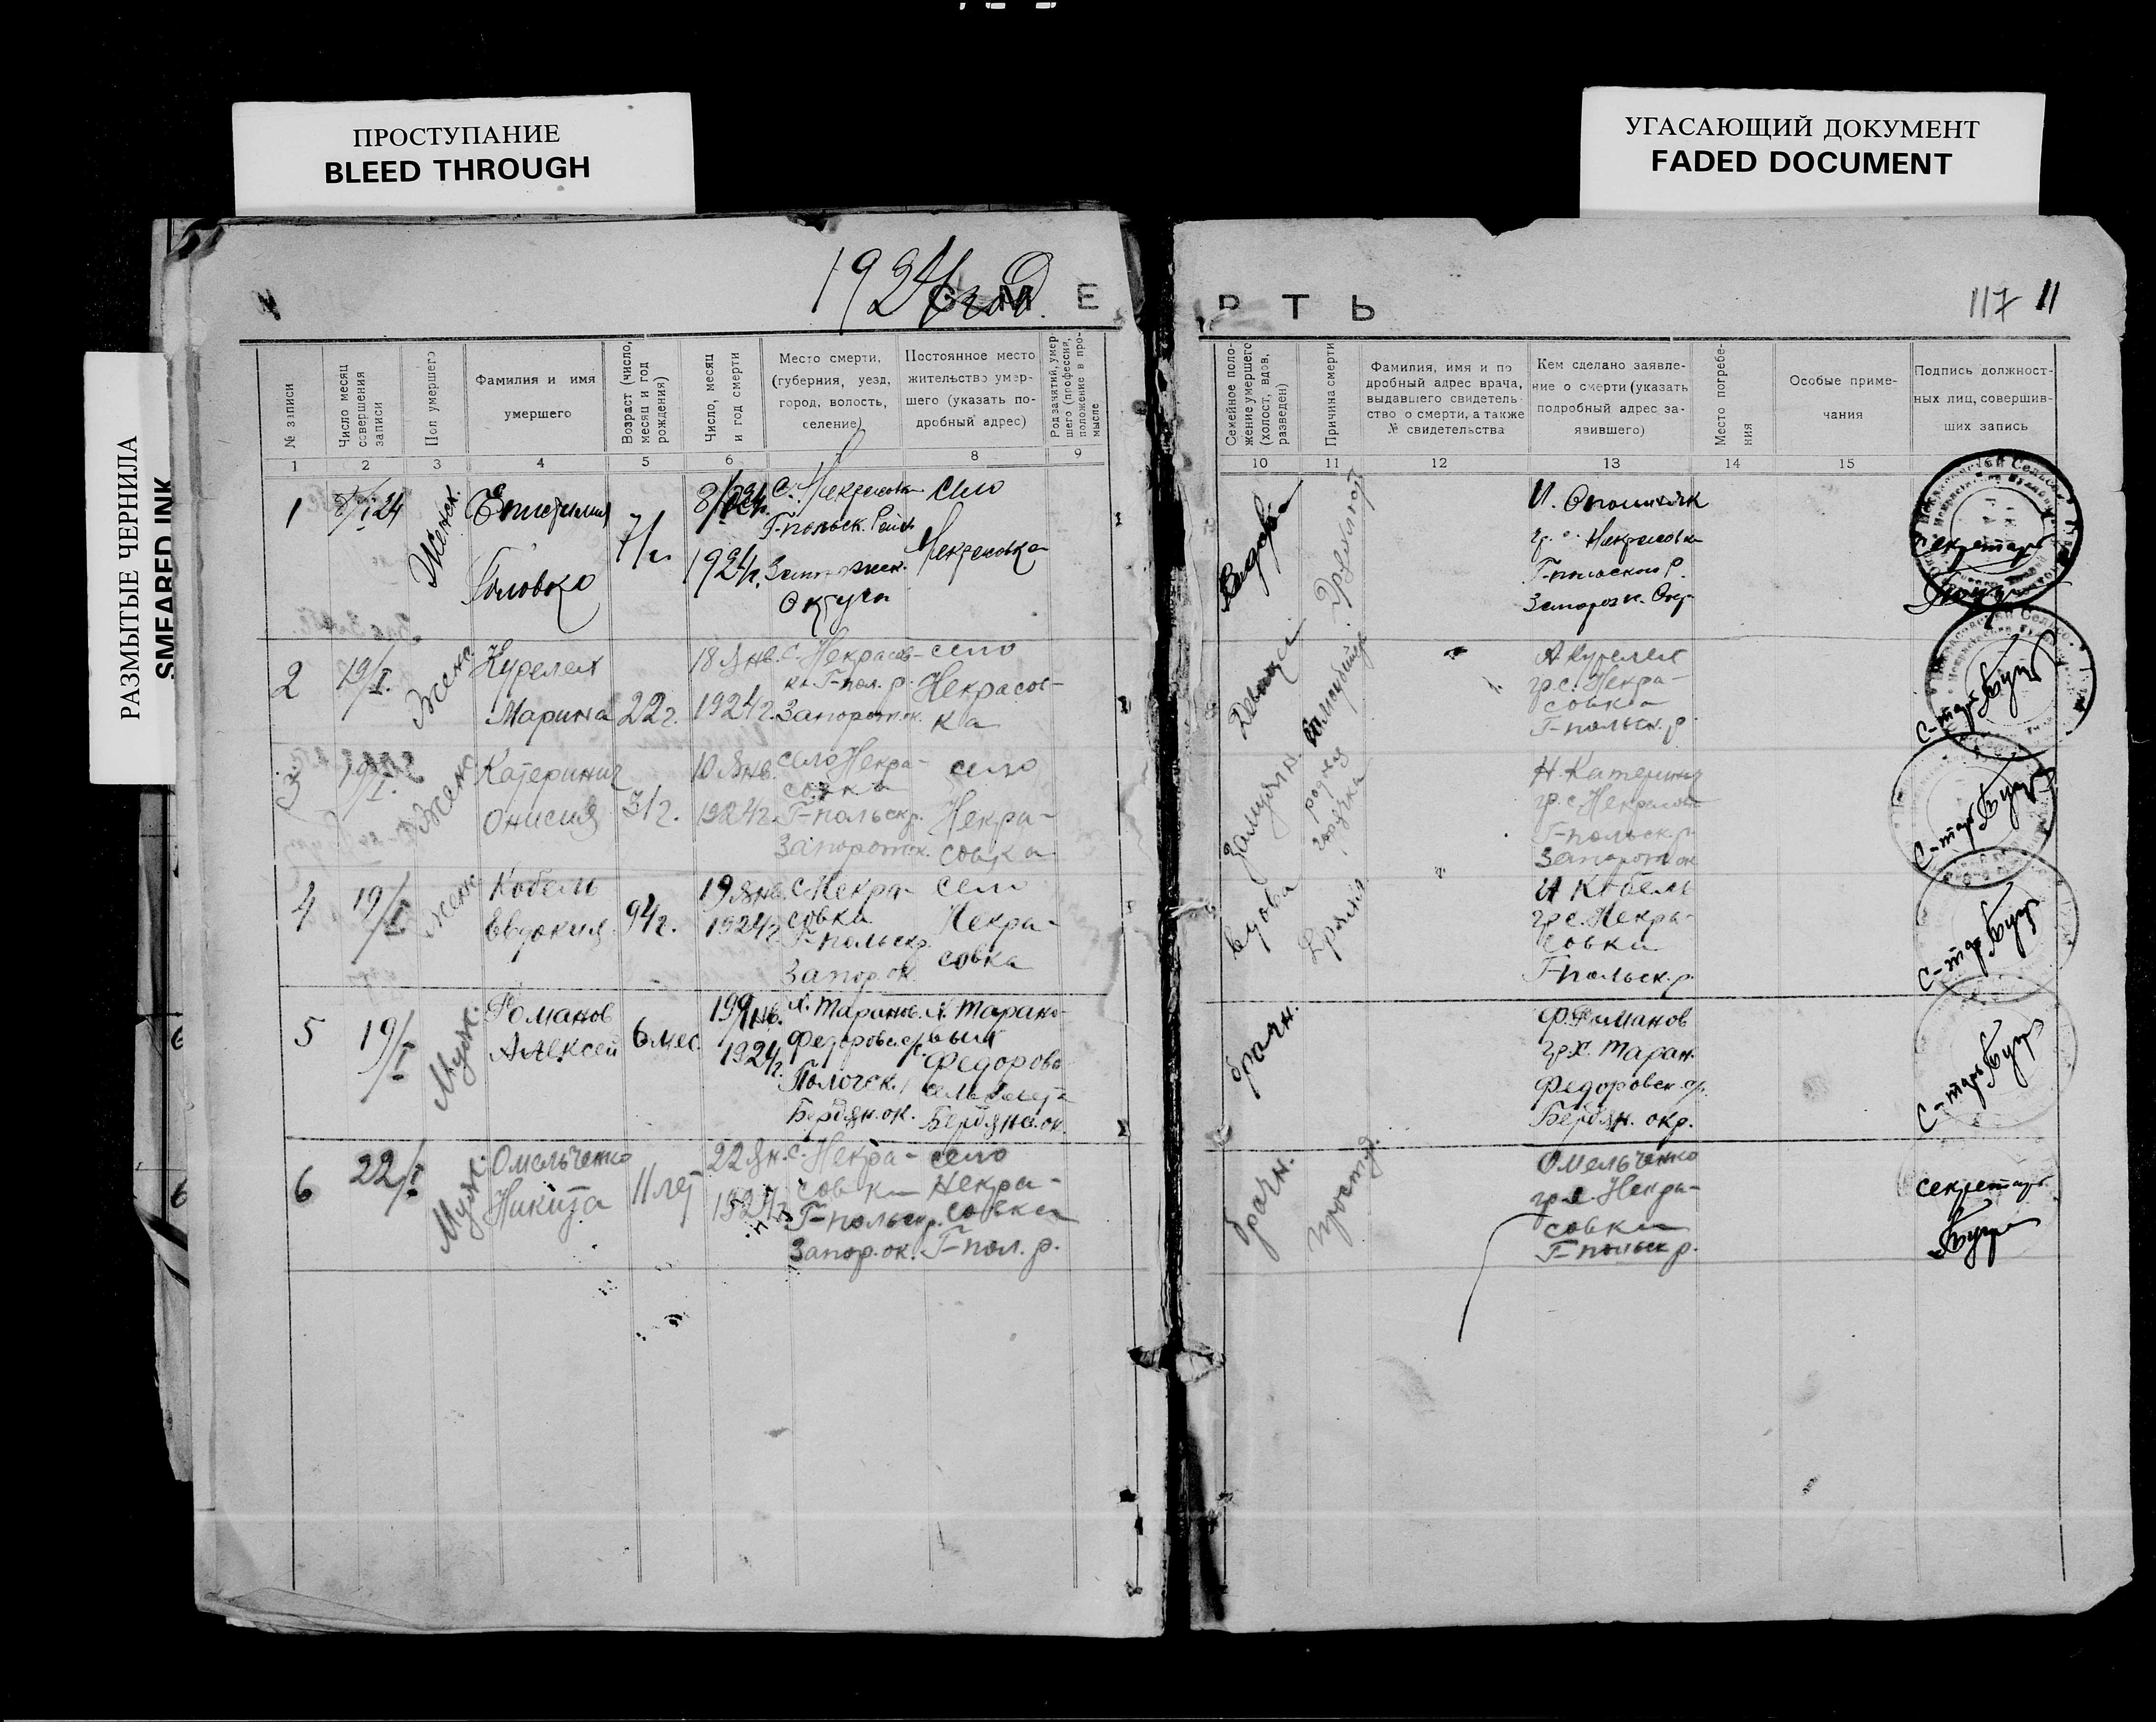 ПРОСТУПАНИЕ
BLEED THROUGH
УГАСАЮЩИЙ ДОКУМЕНТ
FADED DOCUMENT
РАЗМЫТЫЕ ЧЕРНИЛА
SMEARED INK
1924 год.
СМЕ
РТЬ
117 11
№ записи
Число месяц
совершения
записи
Пол умершего
Фамилия и имя
умершего
Возраст (число,
месяц и год
рождения)
Число, месяц
и год смерти
Место смерти,
(губерния, уезд,
город, волость,
селение)
Постоянное место
жительство умер-
шего (указать по-
дробный адрес)
Род занятий, умер-
шего (профессия,
положение в про-
мысле
Семейное поло-
жение умершего
(холост, вдов,
разведен)
Причина смерти
Фамилия, имя и по
дробный адрес врача,
выдавшего свидетель-
ство о смерти, а также
№ свидетельства
Кем сделано заявле-
ние о смерти (указать
подробный адрес за-
явившего)
Место погребе-
ния
Особые приме-
чания
Подпись должност-
ных лиц, совершив-
ших запись
1 2 3 4 5 6 7 8 9
10 11 12 13 14 15
1
8/I 24
Женск.
Головко
8/I
1924г.
с. Некрасовка
Г-польск. Район
Запорожск.
Округа
Село
Некрасовка
Вдова
И.
гр. с. Некрасовка
Г-польского Р.
Запорож. Окр.
Секретарь
2
19/I.
Женс
Курелех
Марина
22г.
18 Янв.
1924г.
с. Некрасов-
ка Г-пол. р.
Запорож ок.
село
Некрасов-
ка
Девица
А Курелех
гр. с. Некра-
совка
Г-польск. р
С-тарь
3
19/I.
Женс
Катеринич
Онисия
31г.
10 Янв.
1924г.
село Некра-
совка
Г-польск р.
Запорож ок.
село
Некра-
совка
Замужн.
родах
горячка
Н. Катеринич
гр. с. Некрасовк
Г-польск р
Запорож ок
С-тарь
4
19/I
женс
Кобель
Евдокия
94г.
19 Янв.
1924г.
с Некра-
совка
Г-польск р.
Запор. ок.
село
Некра-
совка
вдова
И Кобель
гр с. Некра-
совка
Г-польск. р
С-тар
5
19/I
Муж.
Романов
Алексей
6 мес.
19 Янв.
1924г.
х. Таранов.
Федоровск
Пологск.
Бердян. ок.
х. Тарано-
вый
Федоров
Бердянс. ок.
Ф. Романов
гр. х. Таран.
Федоровск
Бердян. окр.
С-тарь
6
22/I
Муж.
Омельченко
Никита
11 лет
22 Ян.
1924г
с. Некра-
совка
Г-польск р.
Запор. ок.
село
Некра-
совка
Г-пол. р.
простуд.
Омельченко
гр. с. Некра-
совка
Г-польск р.
секретарь